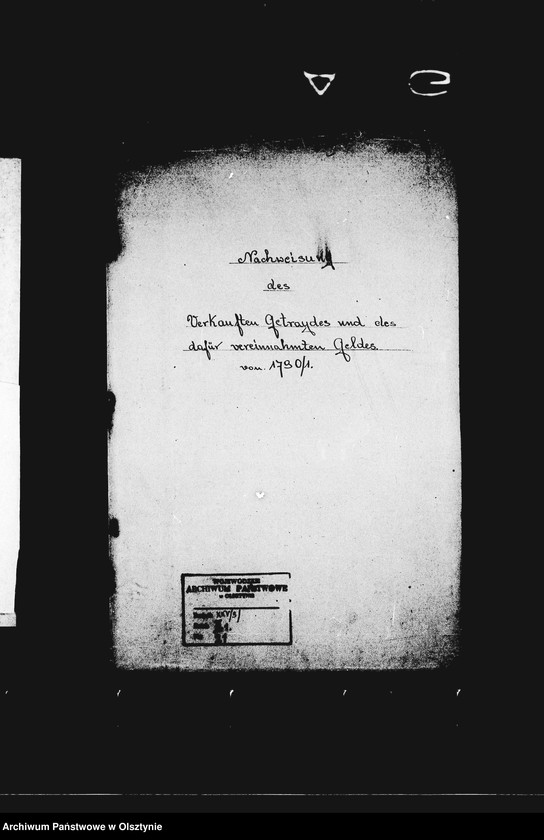 Nachweisung
des
Verkauften Getraydes und des
dafür vereinnahmten Geldes.
von 1790/1.
WOJEWÓDZKIE
ARCHIWUM PAŃSTWOWE
w OLSZTYNIE
XXV/5/
Archiwum Państwowe w Olsztynie